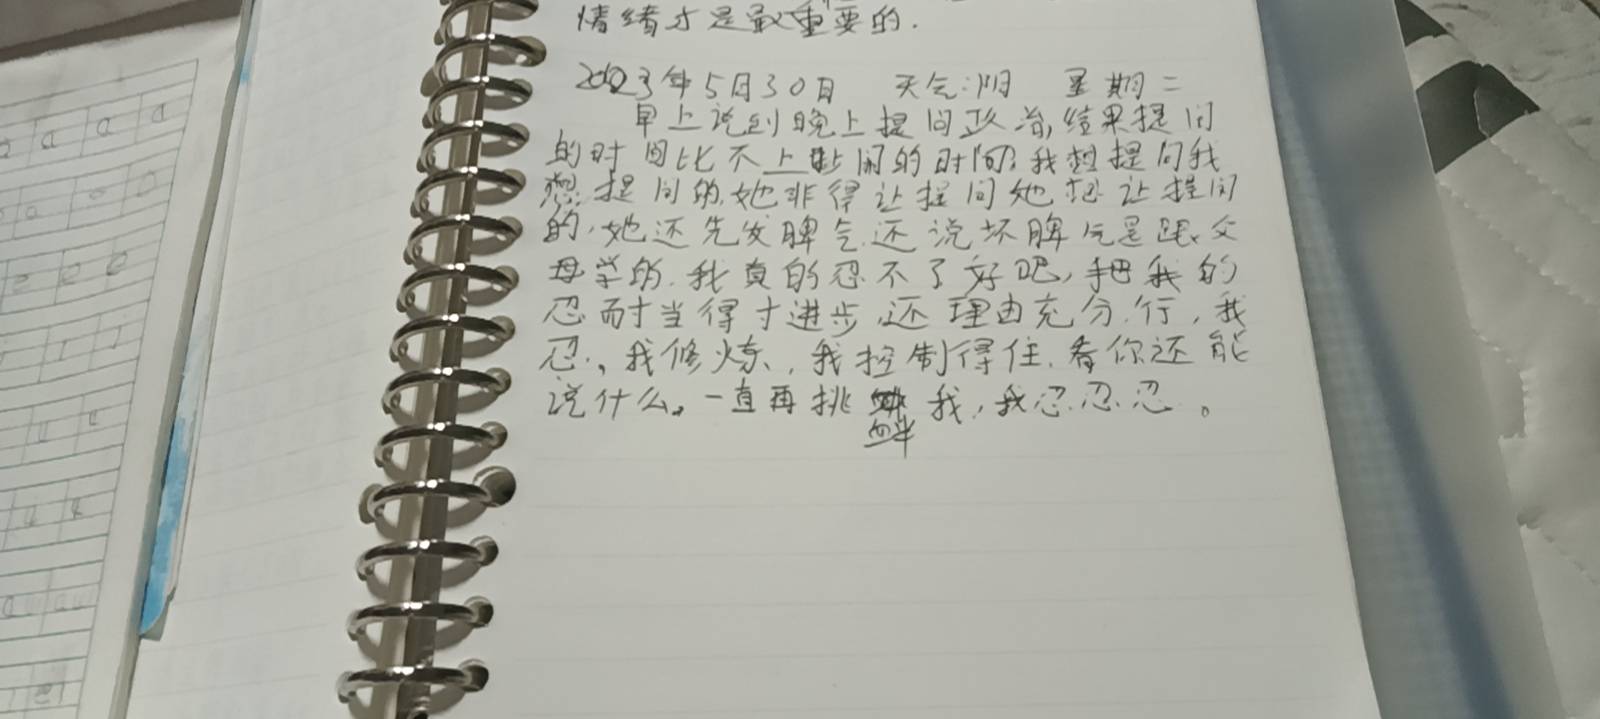 情绪才是最重要的.
2023年5月30日 天气:阴 星期二
早上说到晚上提问政治,结果提问
的时间比不上 闹的时间,我想提问我
想提问的,她非得让提问她想让提问
的,她还先发脾气,还说坏脾气是跟父
母学的.我真的忍不了好吧,把我的
忍耐当得寸进步,还理由充分.行,我
忍,我修炼,我控制得住.看你还能
说什么。一直再挑 我,我忍.忍.忍。
衅